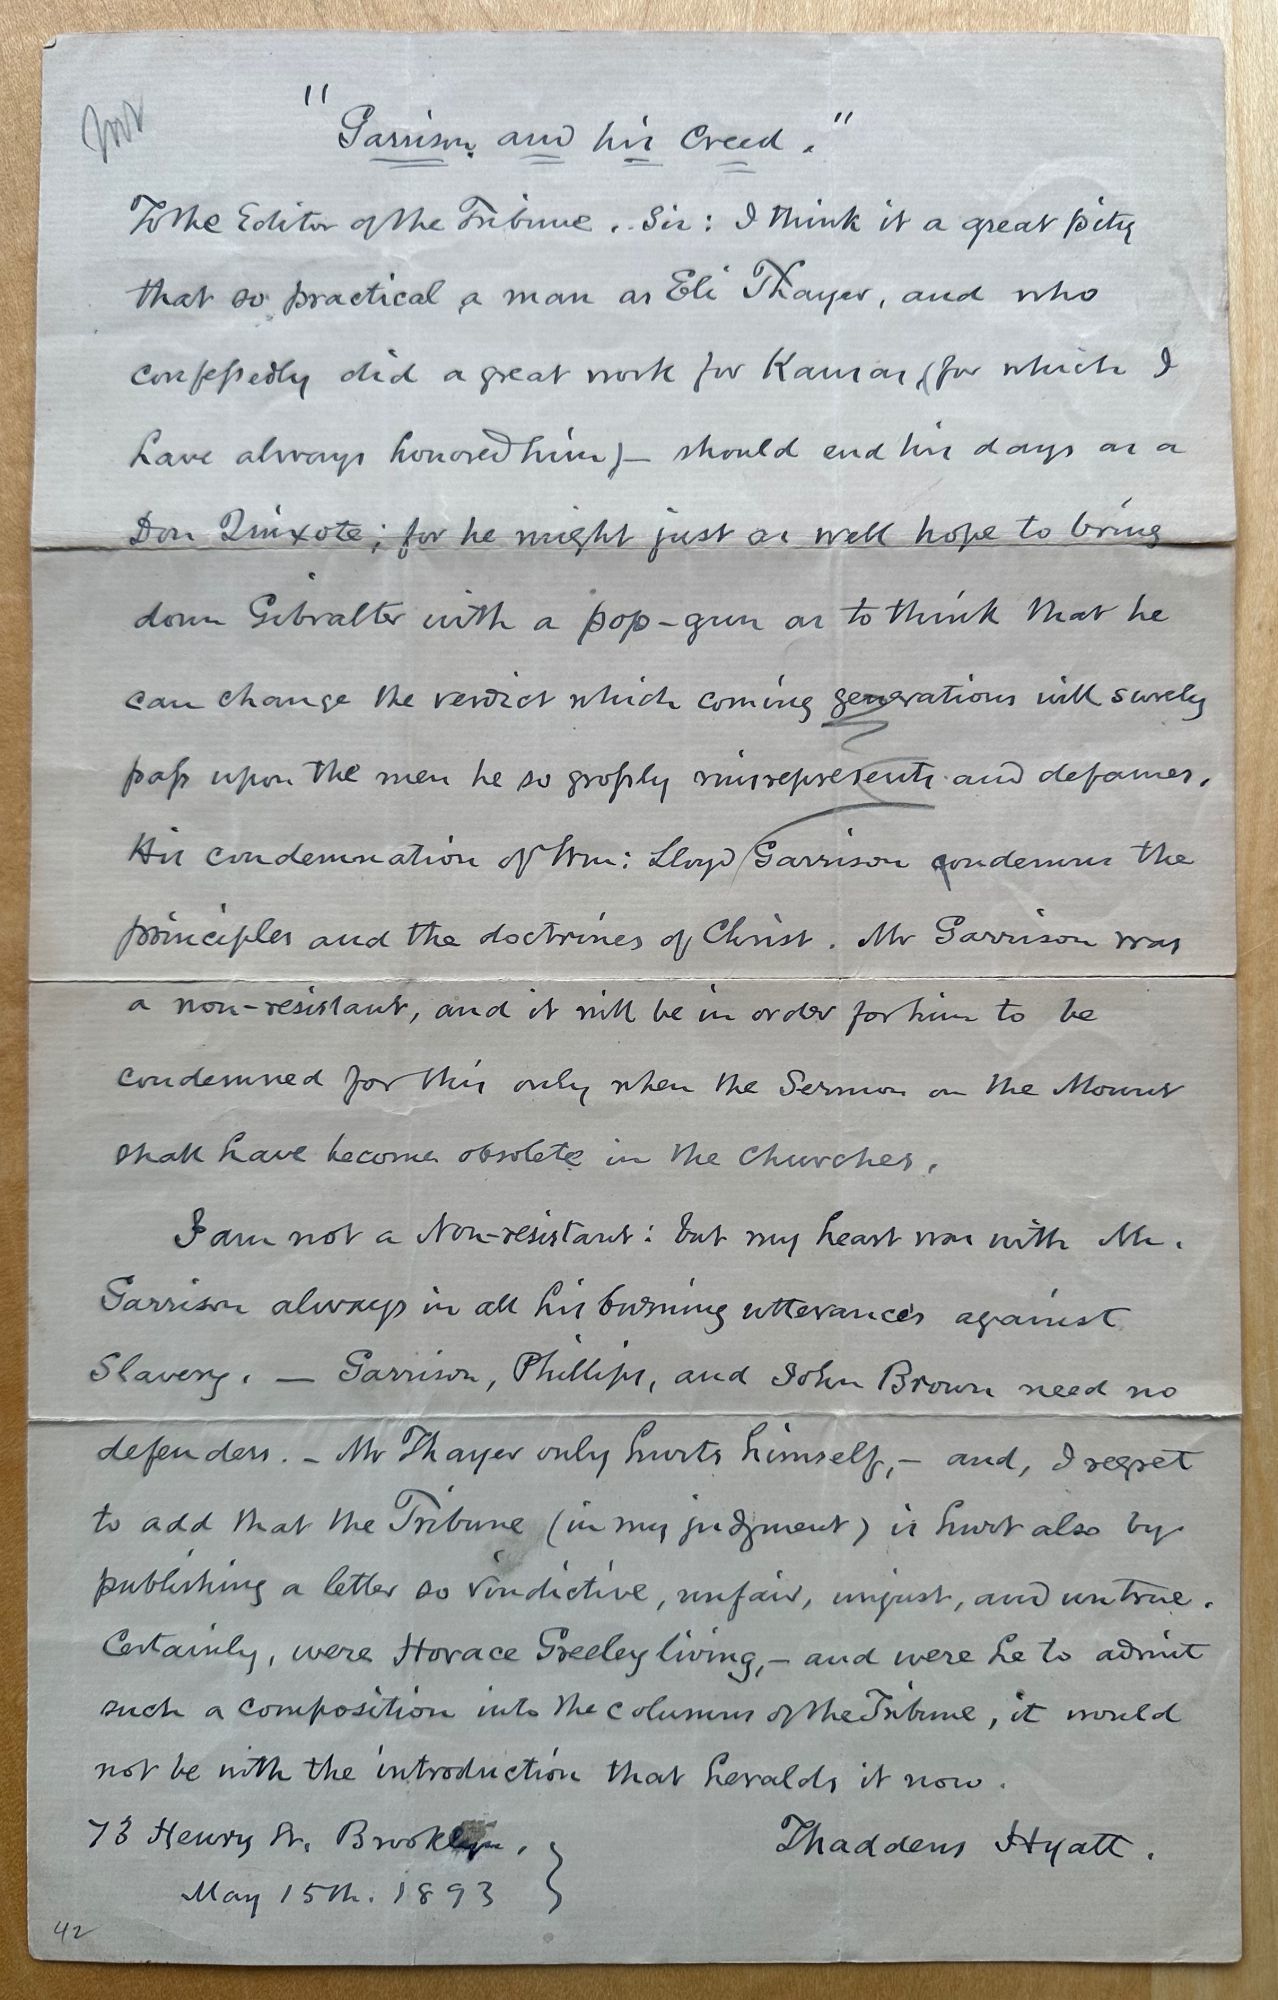 "Garrison and his Creed."
To the Editor of the Tribune. Sir: I think it a great pity
that so practical a man as Eli Thayer, and who
confessedly did a great work for Kansas, (for which I
have always honored him) — should end his days as a
Don Quixote; for he might just as well hope to bring
down Gibralter with a pop-gun as to think that he
can change the verdict which coming generations will surely
pass upon the men he so grossly misrepresents and defames.
His condemnation of Wm: Lloyd Garrison condemns the
principles and the doctrines of Christ. Mr Garrison was
a non-resistant, and it will be in order for him to be
condemned for this only when the Sermon on the Mount
shall have become obsolete in the churches.
I am not a Non-resistant: but my heart was with Mr.
Garrison always in all his burning utterances against
Slavery. — Garrison, Phillips, and John Brown need no
defenders. – Mr Thayer only hurts himself, – and, I regret
to add that the Tribune (in my judgment) is hurt also by
publishing a letter so vindictive, unfair, unjust, and untrue.
Certainly, were Horace Greeley living, – and were he to admit
such a composition into the columns of the Tribune, it would
not be with the introduction that heralds it now.
73 Henry St. Brooklyn. } Thaddeus Hyatt.
May 15th. 1893
42